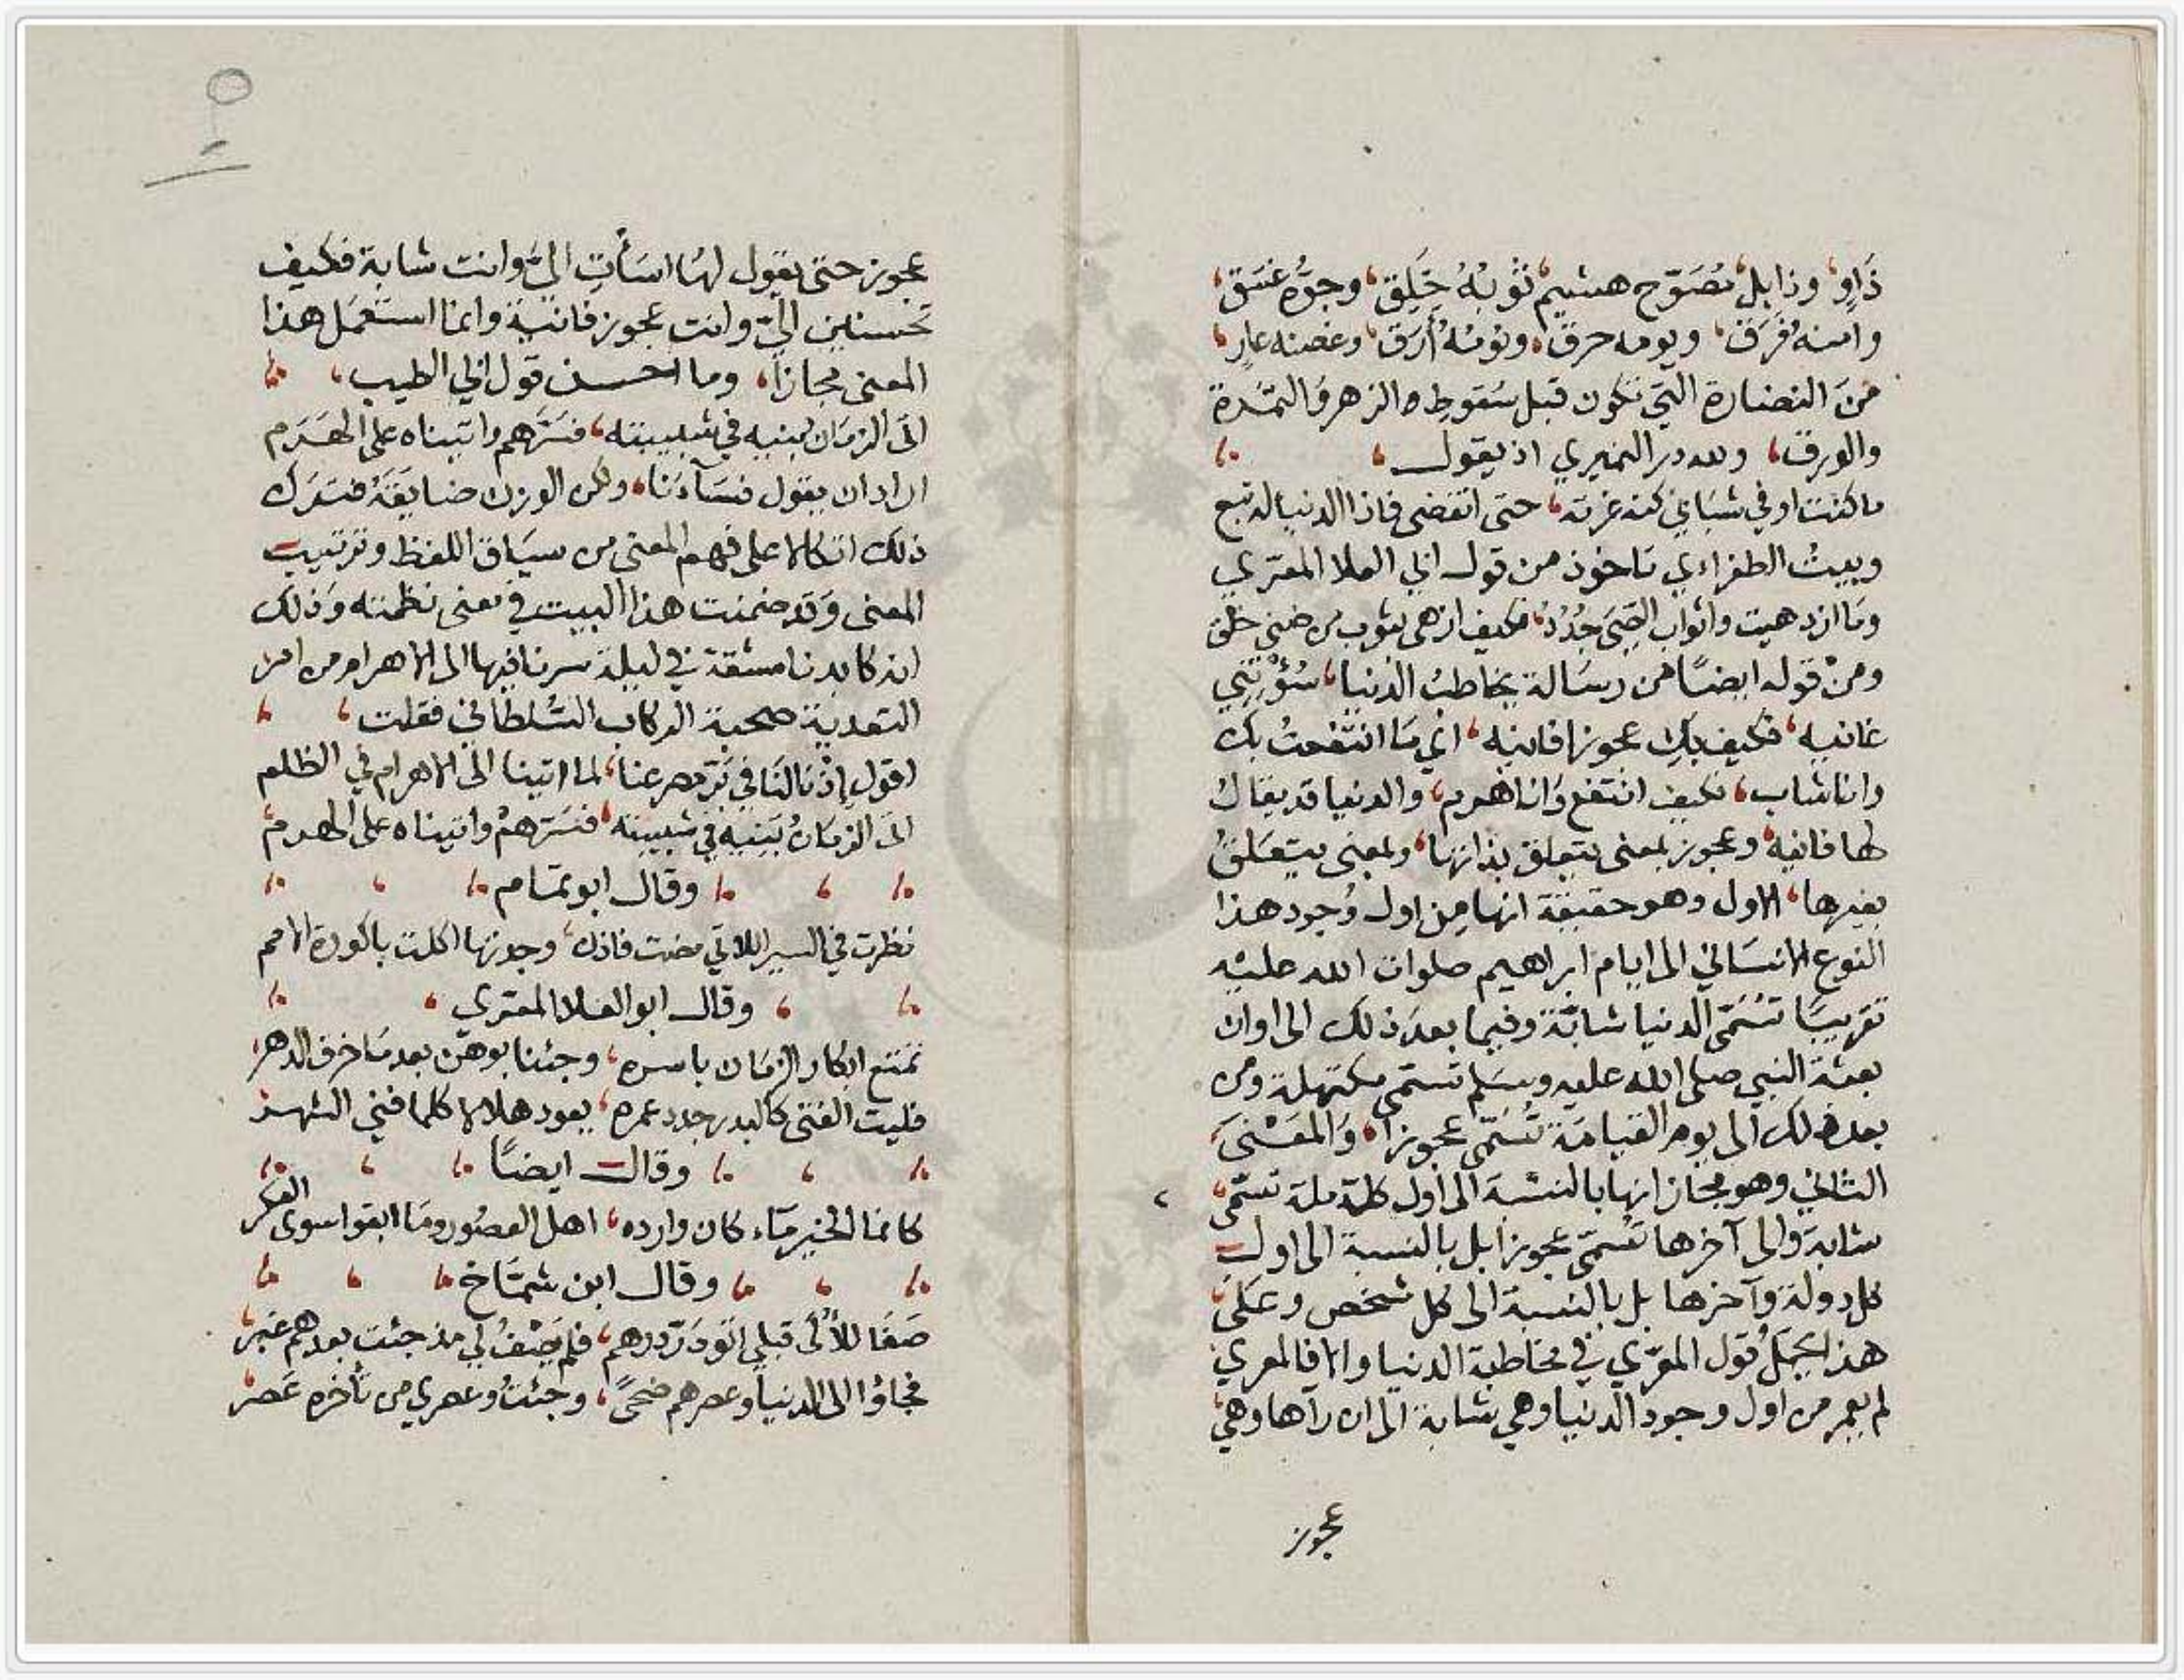 ذَاوٍ، وذابل، مُصَوّح هشيم، ثَوْبُهُ خَلِق، وجوّه غسَق،
وامنه فَرَق، ويومه حرق، ونومُهُ أَرَق، وغصنه عارٍ،
منَ النضارة التي تكون قبل سُقوط الزهر والثمَرة
والورق، ولله در النميري اذ يقول،
ما كنت اوفي شبَابي كنه غرته، حتى انقضى فاذا الدنيا له تبع
وبيتُ الطغراءي مَاخوذ من قول ابي العلا المعَرّي
ومَا ازدهيت واثواب الصِّبَى جُدُدٌ، فكيف ازهى بثوب من ضنى خلق
ومنْ قوله ايضًا من رسَالة يخاطبُ الدنيا، سُؤْتِنِي
غانيه، فكيف بكِ عجوزا فانيه، اي مَا انتفعتُ بك
وانا شاب، فكيف انتفع وَانا هرم، والدنيا قد يقال
لها فانيه، وعجوز بمعنى يتعلق بذاتها، وبمعنى يتعَلقُ
بغيرها، الاول وهو حقيقة انها من اول وُجود هذا
النوع الانسَاني الى ايام ابراهيم صلوات الله عليْه
تقريبًا تسُمَّى الدنيا شابَّة وفيما بعدَ ذلك الى اوان
بعثة النبي صلى الله عليه وسَلم تسَمّى مكتهلة ومن
بعد ذلك الى يوم القيامَة تُسَمَّى عجوزا، وَالمعَنْىَ
الثاني وهو مجاز انها بالنسْبة الى اول كل ملة تسَمّى،
شابة والى آخرها تُسَمّى عجوزا بل بالنسبة الى اول
كل دولة وآخرها بل بالنسْبة الى كل شخص وعَلَى
هذا يُحمَلُ قول المعَرّي في مخاطبة الدنيا والا فالمعري
لم يعمر من اول وجود الدنيا وهي شابة الى ان رآها وهي
عجوز
٥
عجوز حتى يقول لهَا اسَأتِ اليَّ وانت شابة فكيف
تحسنين اليّ وانت عجوز فانيَة وانما استعمَل هذا
المعنى مجازا، وما احسن قول ابي الطيب،
اتَى الزمَان بنيه في شبيبته، فسَرّهم واتيناه على الهَرَم
اراد ان يقول فسَآءَنا، ولكن الوزن ضايقَهُ فترَك
ذلك اتكالا على فهم المعنى من سيَاق اللفظ وترتيب
المعنى وَقد ضمنت هذا البيت في معنى نظمته وَذلك
انه كابدنا مشقة في ليلة سرنا فيها الى الاهرام من امر
التعدية صحبة الركاب السُّلطاني فقلت،
اقول إذْ نالنَا في بَرّ مصر عنا، لما اتينا الى الاهرام في الظلم
اتَى الزمَانُ بَنيهِ في شبيبته، فسَرّهمُ واتيناه على الهرم
وقال ابو تمَام
نظرت في السير اللاتي مضت فاذا، وجدتها اكلت باكورة الامم
وقال ابو العَلا المعَري،
تمَتع ابكار الزمَان باسره، وجئنا بوهن بعد مَا خرف الدهر،
فليت الفتى كالبدر جدد عمره، يعود هلالا كلما فني الشهر
وقال ايضًا
كانما الخير مَاء كان وارده، اهل العصُور ومَا ابقوا سوى العكر
وقال ابن شمَّاخ
صَفَا للأُلَى قبلي اتوْ دَرّ درهم، فلم يَصْفُ لي مذ جئت بعدهم غير،
فجاؤا الى الدنيا وعصرهم ضحىً، وجئتُ وعصري من تأخره عَصر،